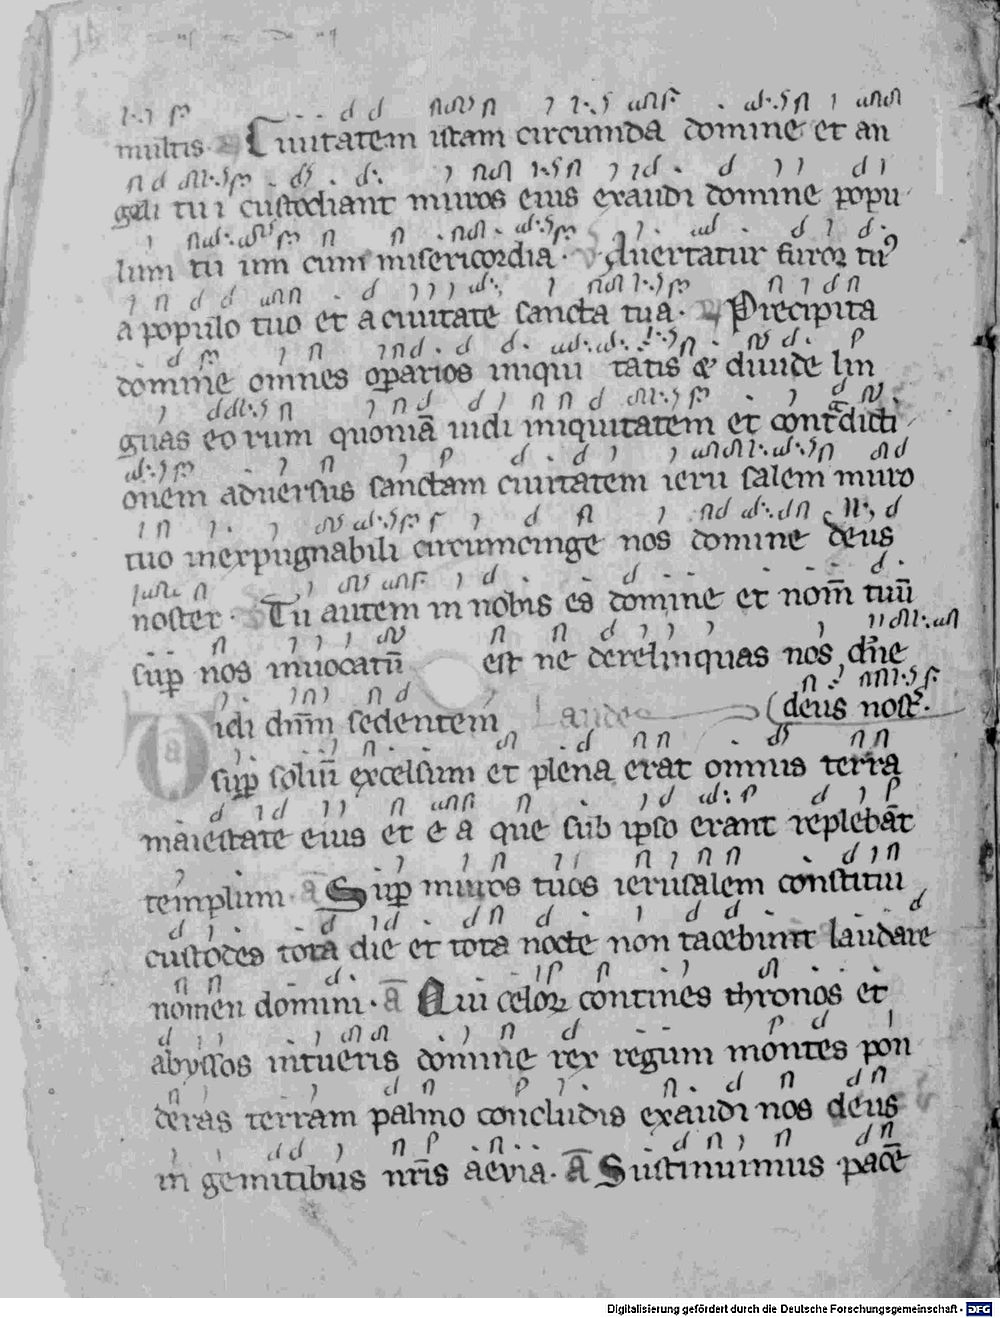 multis. Ciuitatem istam circumda domine et an
geli tui custodiant muros eius exaudi domine popu
lum tu um cum misericordia. V Auertatur furor tuꝰ
a populo tuo et a ciuitate sancta tua. Precipita
domine omnes oꝑarios iniqui tatis & diuide lin
guas eo rum quoniā uidi iniquitatem et cont̄dicti
onem aduersus sanctam ciuitatem ieru salem muro
tuo inexpugnabili circumcinge nos domine deus
noster. Tu autem in nobis es domine et nom̄ tuū
suꝑ nos inuocatū est ne derelinquas nos dn̄e
deus nost̄.
Uidi dn̄m sedentem Laudes
suꝑ soliū excelsum et plena erat omnis terra
maiestate eius et e a que sub ipso erant replebāt
templum. a Suꝑ muros tuos ierusalem constitui
custodes tota die et tota nocte non tacebunt laudare
nomen domini. ā Qui celoꝝ contines thronos et
abyssos intueris domine rex regum montes pon
deras terram palmo concludis exaudi nos deus
in gemitibus nr̄is aeuia. ā Sustinuimus pacē
Digitalisierung gefördert durch die Deutsche Forschungsgemeinschaft - DFG